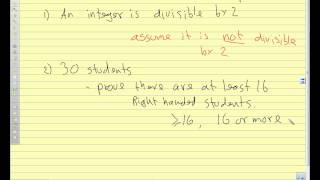 1) An integer is divisible by 2
assume it is not divisible
by 2
2) 30 students
- prove there are at least 16
Right handed students.
≥16, 16 or more